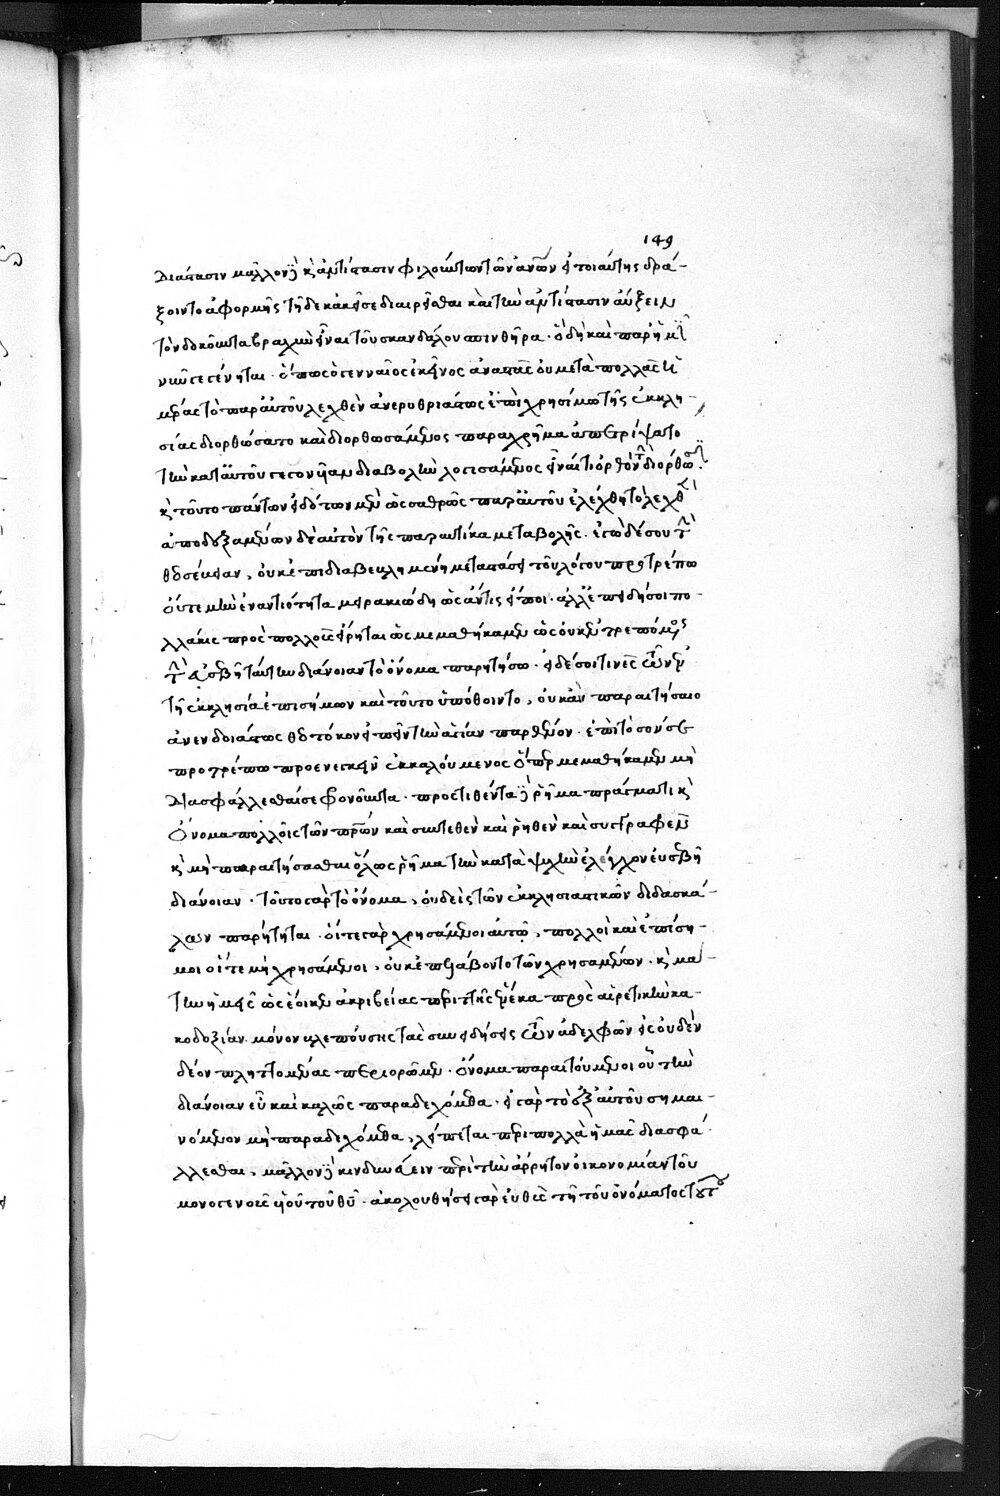 149
διάστασιν μᾶλλον δὲ κ ἀντίστασιν φιλούντων τῶν ἀνων εἰ τοιαύτης δρά-
ξοιντο ἀφορμῆς τῇδε κἀκεῖσε διαιρεῖσθαι καὶ τὴν ἀντίστασιν αὔξειν
τὸν δοκοῦντα βραχὺν εἶναι τοῦ σκανδάλου σπινθῆρα. ὃ δὴ καὶ παρ' ἡμῖ
νῦν γεγένηται. ὅπως ὁ γενναῖος ἐκεῖνος ἀναστὰς οὐ μετὰ πολλὰς
ἡμέρας τὸ παρ' αὐτοῦ λεχθὲν ἀνερυθριάστως ἐπὶ χρησίμω τῆς ἐκκλη-
σίας διορθώσατο καὶ διορθωσάμενος παραχρῆμα ἀπετρίψατο
τὴν κατ' αὐτοῦ γεγονῆαν διαβολὴν λογισάμενος εἶναι τι ὀρθὸν τὴν διόρθω
κ τοῦτο πάντων εἰδότων μὲν ὡς σαθρῶς παρ' αὐτοῦ ἐλέχθη τὸ λεχθὲν
ἀποδεξαμένων δὲ αὐτὸν τῆς παραυτίκα μεταβολῆς. ἐγὼ δέ σου τὴν
θεοσέβειαν, οὐκ ἐπὶ διαβεβλημένη μεταστάσει τοῦ λόγου προτρέπω
οὔτε μὴν ἐναντιότητα μειρακιώδη ὡς ἄν τις εἴποι. ἀλλ' ἐπειδή σοι πο-
λλάκις πρὸς πολλοὺς εἴρηται ὡς μεμαθήκαμεν ὡς οὐκ ἐντρεπόμενος
τὴν εὐσεβῆ ταύτην διάνοιαν τὸ ὄνομα παρῃτήσω. εἰ δέ σοί τινες τῶν ἐν
τῇ ἐκκλησία ἐπισήμων καὶ τοῦτο ὑπόθοιντο, οὐκ ἂν παραιτήσαιο
ἀνενδοιάστως θεοτόκον εἰπεῖν τὴν ἁγίαν παρθένον. ἐπὶ τὸ σὸν σε
προτρέπω προενεγκεῖν ἐκκαλούμενος ὅπερ μεμαθήκαμεν μὴ
διασφάλλεσθαί σε φρονοῦντα. προστιθέντα δὲ ῥῆμα πράγματι κ
ὄνομα πολλοῖς τῶν πρων καὶ συντεθὲν καὶ ῥηθὲν καὶ συγγραφὲν
κ μὴ παραιτήσασθαι ὅλως ῥῆμα τὴν κατὰ ψυχὴν ἐλέγχον εὐσεβῆ
διάνοιαν. τοῦτο γὰρ τὸ ὄνομα, οὐδεὶς τῶν ἐκκλησιαστικῶν διδασκά-
λων παρῄτηται. οἵ τε γὰρ χρησάμενοι αὐτῷ, πολλοὶ καὶ ἐπίση-
μοι οἵ τε μὴ χρησάμενοι, οὐκ ἐπελάβοντο τῶν χρησαμένων. κ μα-
την ἡμεῖς ὡς ἔοικεν ἀκριβείας περιττῆς ἕνεκα πρὸς αἱρετικὴν κα-
κοδοξίαν μόνον βλεπούσης τὰς συνειδήσεις τῶν ἀδελφῶν εἰς οὐδὲν
δέον πληττομένας περιορῶμεν. ὄνομα παραιτούμενοι οὗ τὴν
διάνοιαν εὖ καὶ καλῶς παραδεχόμεθα. εἰ γὰρ τὸ ἐξ αὐτοῦ σημαι-
νόμενον μὴ παραδεχόμεθα, λείπεται περὶ πολλὰ ἡμᾶς διασφά-
λλεσθαι, μᾶλλον δὲ κινδυνεύειν περὶ τὴν ἄρρητον οἰκονομίαν τοῦ
μονογενοῦς υἱοῦ τοῦ θυ. ἀκολουθήσει γὰρ εὐθὺς τῇ τοῦ ὀνόματος τούτου